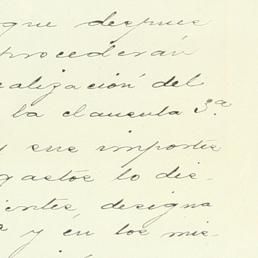 que despues
procederán
alización del
la clausula 3.ª
y sus importes
gastos lo dis-
ientes, designa
y en los mis-